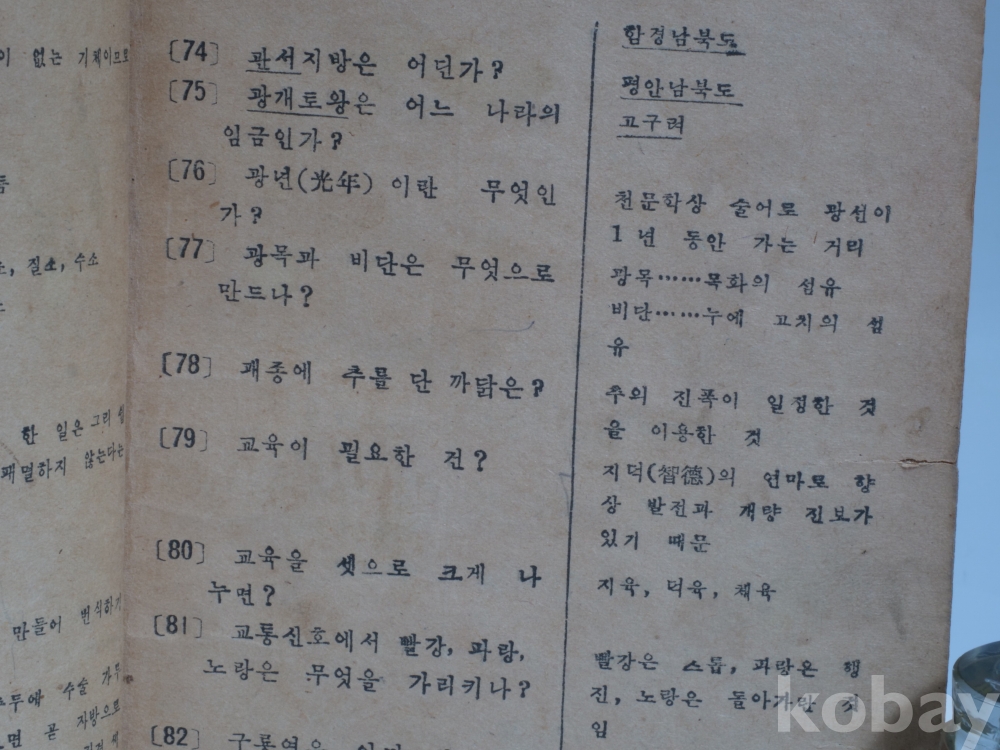 이 없는 기체이므로
질소, 수소
한 일은 그리 쉽
패멸하지 않는다는
만들어 번식하기
두에 수술 가두
면 곧 자방으로
[74] 관서지방은 어딘가?
[75] 광개토왕은 어느 나라의
임금인가?
[76] 광년(光年) 이란 무엇인
가?
[77] 광목과 비단은 무엇으로
만드나?
[78] 괘종에 추를 단 까닭은?
[79] 교육이 필요한 건?
[80] 교육을 셋으로 크게 나
누면?
[81] 교통신호에서 빨강, 파랑,
노랑은 무엇을 가리키나?
[82] 구룡연은
함경남북도
평안남북도
고구려
천문학상 술어로 광선이
1년 동안 가는 거리
광목……목화의 섬유
비단……누에 고치의 섬
유
추의 진폭이 일정한 것
을 이용한 것
지덕(智德)의 연마로 향
상 발전과 개량 진보가
있기 때문
지육, 덕육, 체육
빨강은 스톱, 파랑은 행
진, 노랑은 돌아가란 것
임
kobay